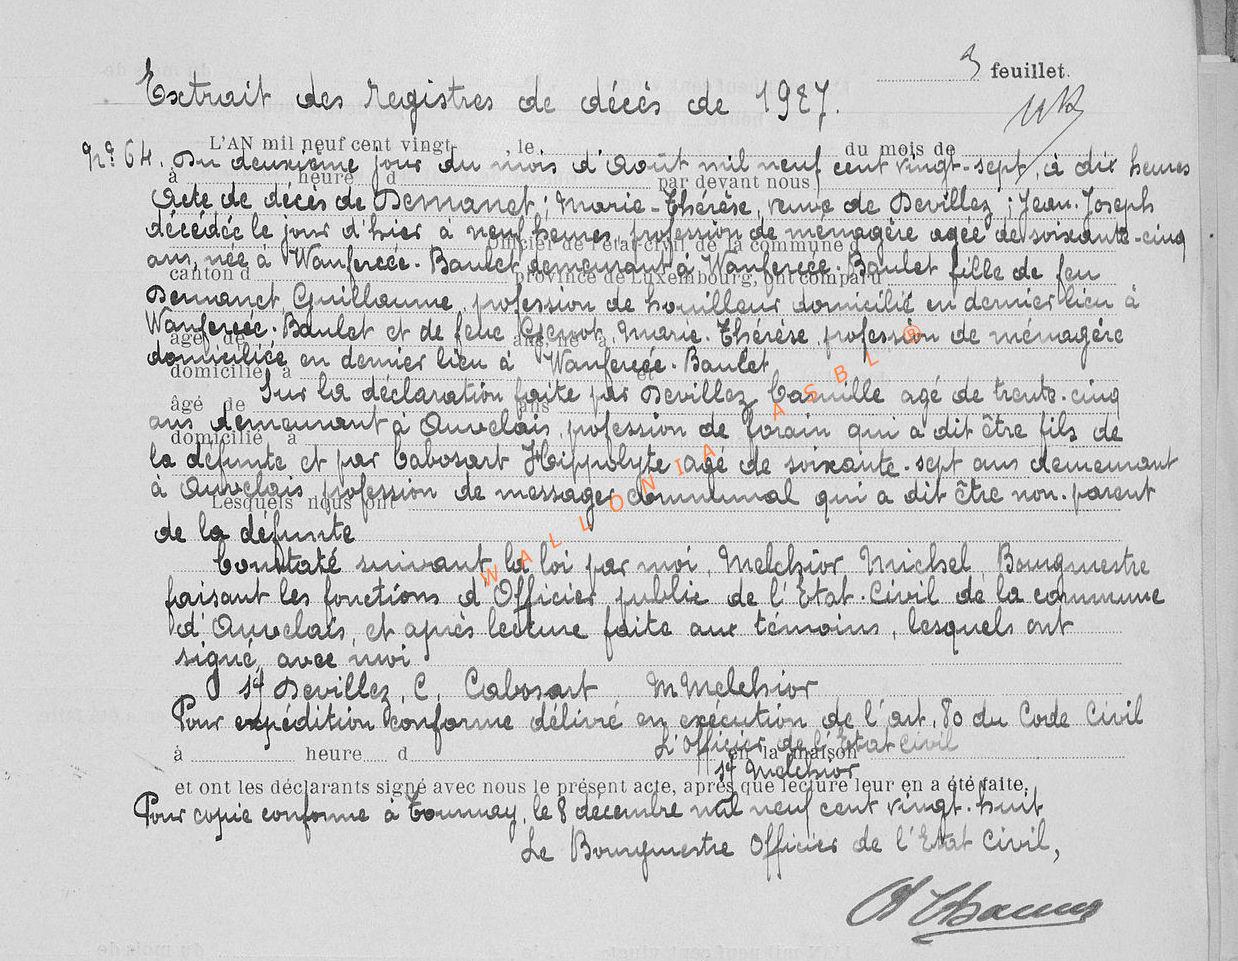 3 feuillet.
Extrait des registres de décès de 1927.
L'AN mil neuf cent vingt , le du mois de
N° 64. Du deuxième jour du mois d'Août mil neuf cent vingt-sept, à dix heures
à heure d par devant nous
Acte de décès de Demanet ; Marie-Thérèse, veuve de Devillez ; Jean-Joseph
décédée le jour d'hier à neuf heures, profession de ménagère agée de soixante-cinq
Officier de l'état-civil de la commune d
ans, née à Wanfercée-Baulet demeurant à Wanfercée-Baulet fille de feu
canton d province de Luxembourg, ont comparu
Demanet Guillaume, profession de houilleur domicilié en dernier lieu à
Wanfercée-Baulet et de feue Marie-Thérèse profession de ménagère
âgé de ans, né à
domiciliée en dernier lieu à Wanfercée-Baulet
domicilié à et
Sur la déclaration faite par Devillez Camille agé de trente-cinq
âgé de ans
ans demeurant à Auvelais, profession de forain qui a dit être fils de
domicilié à
la défunte et par Cabosart Hippolyte agé de soixante-sept ans demeurant
à Auvelais profession de messager communal qui a dit être non-parent
Lesquels nous ont
de la défunte
Constaté suivant la loi par moi, Melchior Michel, Bourgmestre
faisant les fonctions d'Officier public de l'Etat-Civil de la commune
d'Auvelais, et après lecture faite aux témoins, lesquels ont
signé, avec moi
sé Devillez, C, Cabosart M Melchior
Pour expédition conforme délivré en exécution de l'art. 80 du Code Civil
L'Officier de l'Etat Civil
à heure d en la maison
sé Melchior
et ont les déclarants signé avec nous le présent acte, après que lecture leur en a été faite.
Pour copie conforme à Tournay, le 8 décembre mil neuf cent vingt-huit
Le Bourgmestre Officier de l'Etat Civil,
WALLONIA ASBL ®